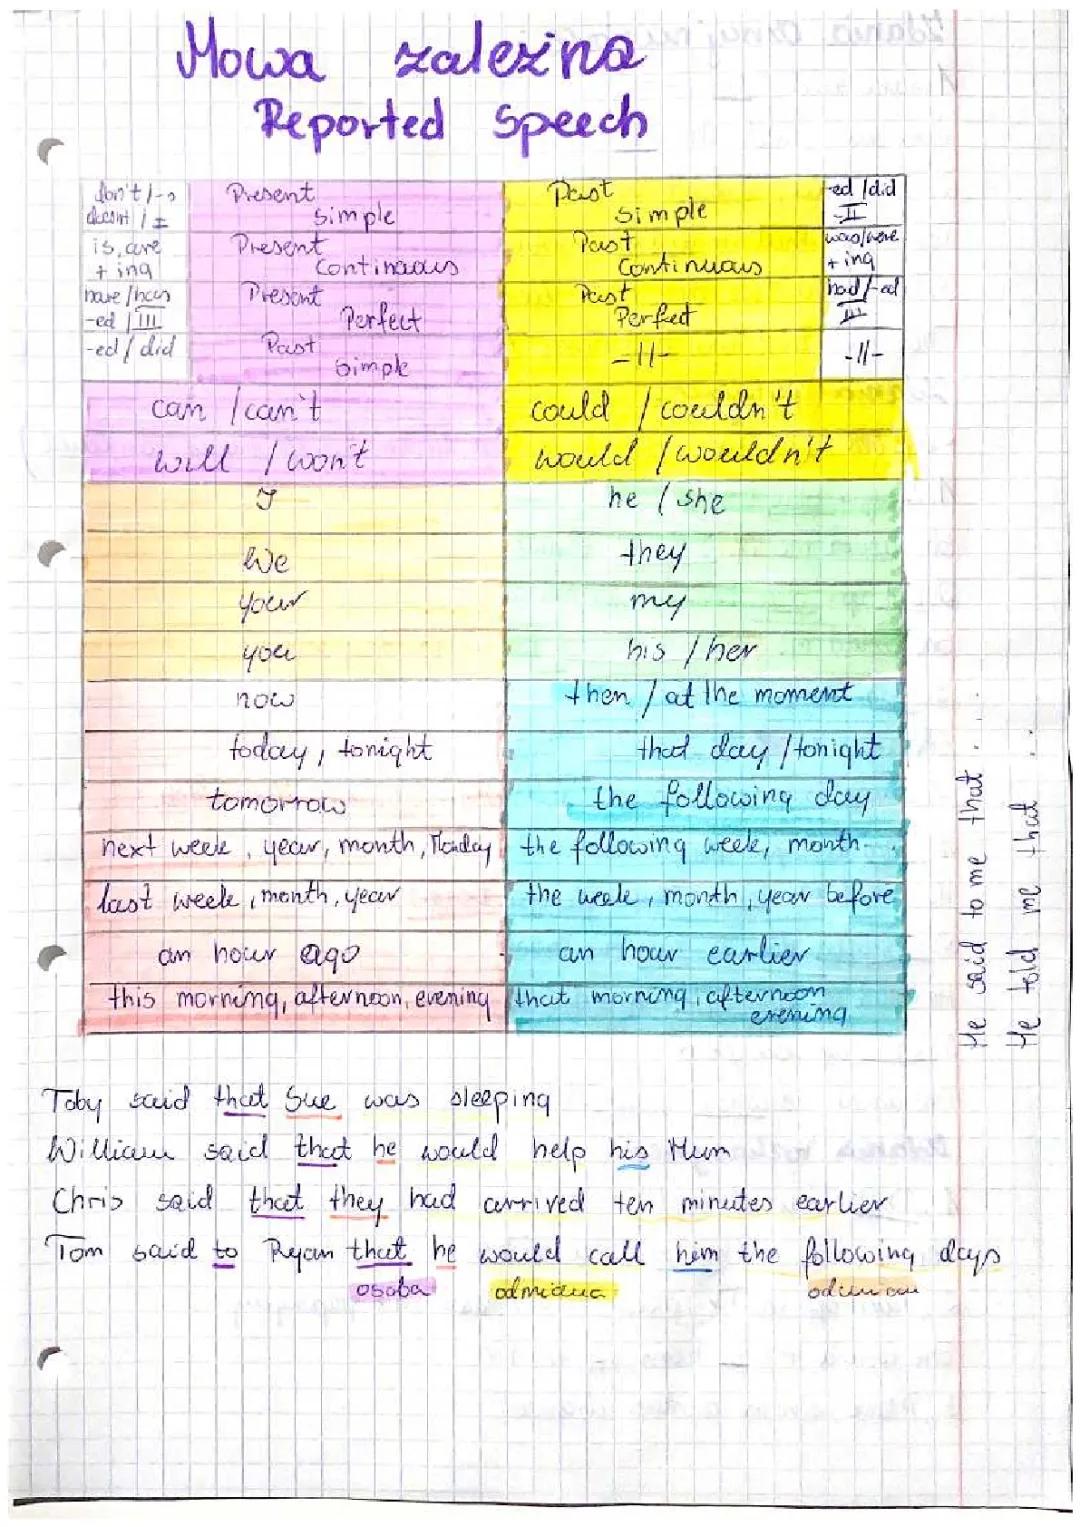 Mowa zależna
Reported Speech
don't / -s Present Past -ed / did
doesn't / I simple simple II
is, are Present Past was/were
+ ing Continuous Continuous + ing
have / has Present Past had / -ed
-ed / III Perfect Perfect III
-ed / did Past simple -||- -||-
can / can't could / couldn't
will / won't would / wouldn't
I he / she
We they
your my
you his / her
now then / at the moment
today, tonight that day / tonight
tomorrow the following day
next week, year, month, Monday the following week, month
last week, month, year the week, month, year before
an hour ago an hour earlier
this morning, afternoon, evening that morning, afternoon
evening
He said to me that ...
He told me that ...
Toby said that Sue was sleeping
William said that he would help his Mum
Chris said that they had arrived ten minutes earlier
Tom said to Ryan that he would call him the following days
osoba odmiana